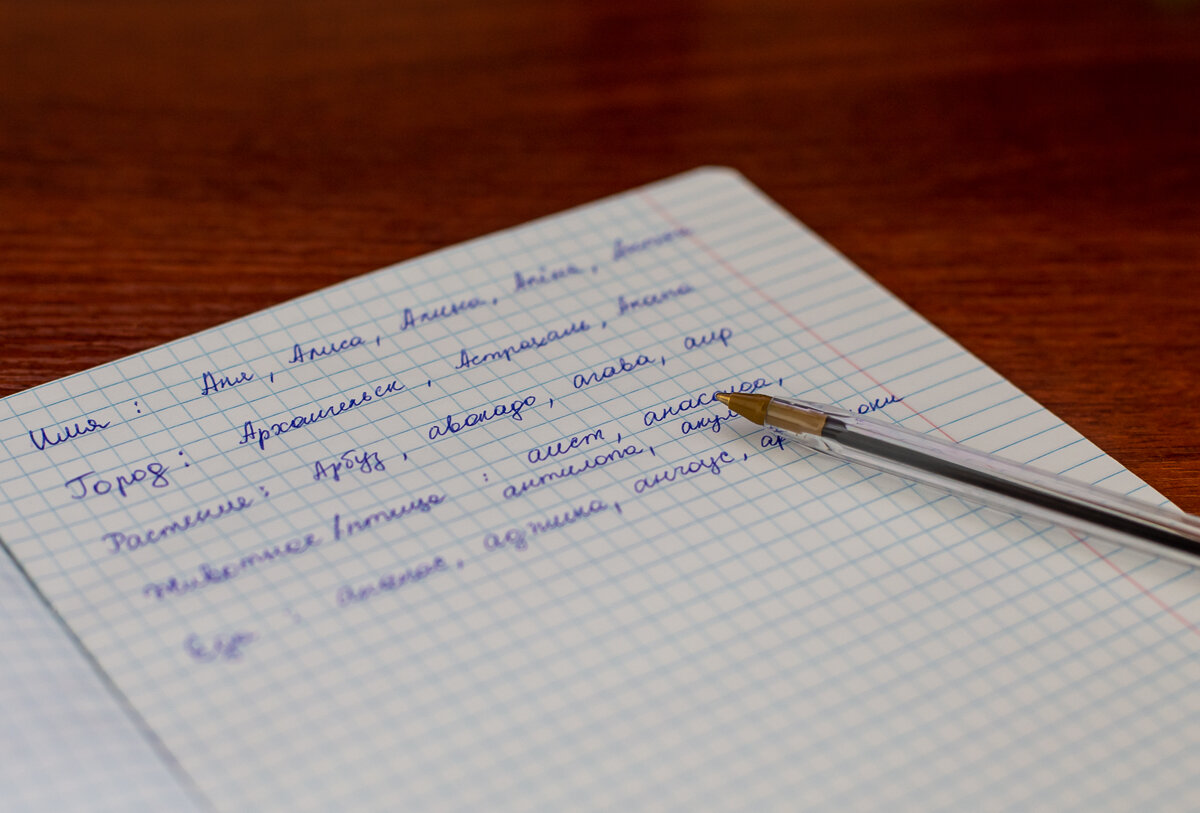 Имя : Аня, Алиса, Алина, Алёна,
Город: Архангельск, Астрахань, Анапа
Растение: Арбуз, авокадо, агава, аир
Животное/птица : аист, анаконда,
антилопа, акула
Еда : ананас, аджика, анчоус,